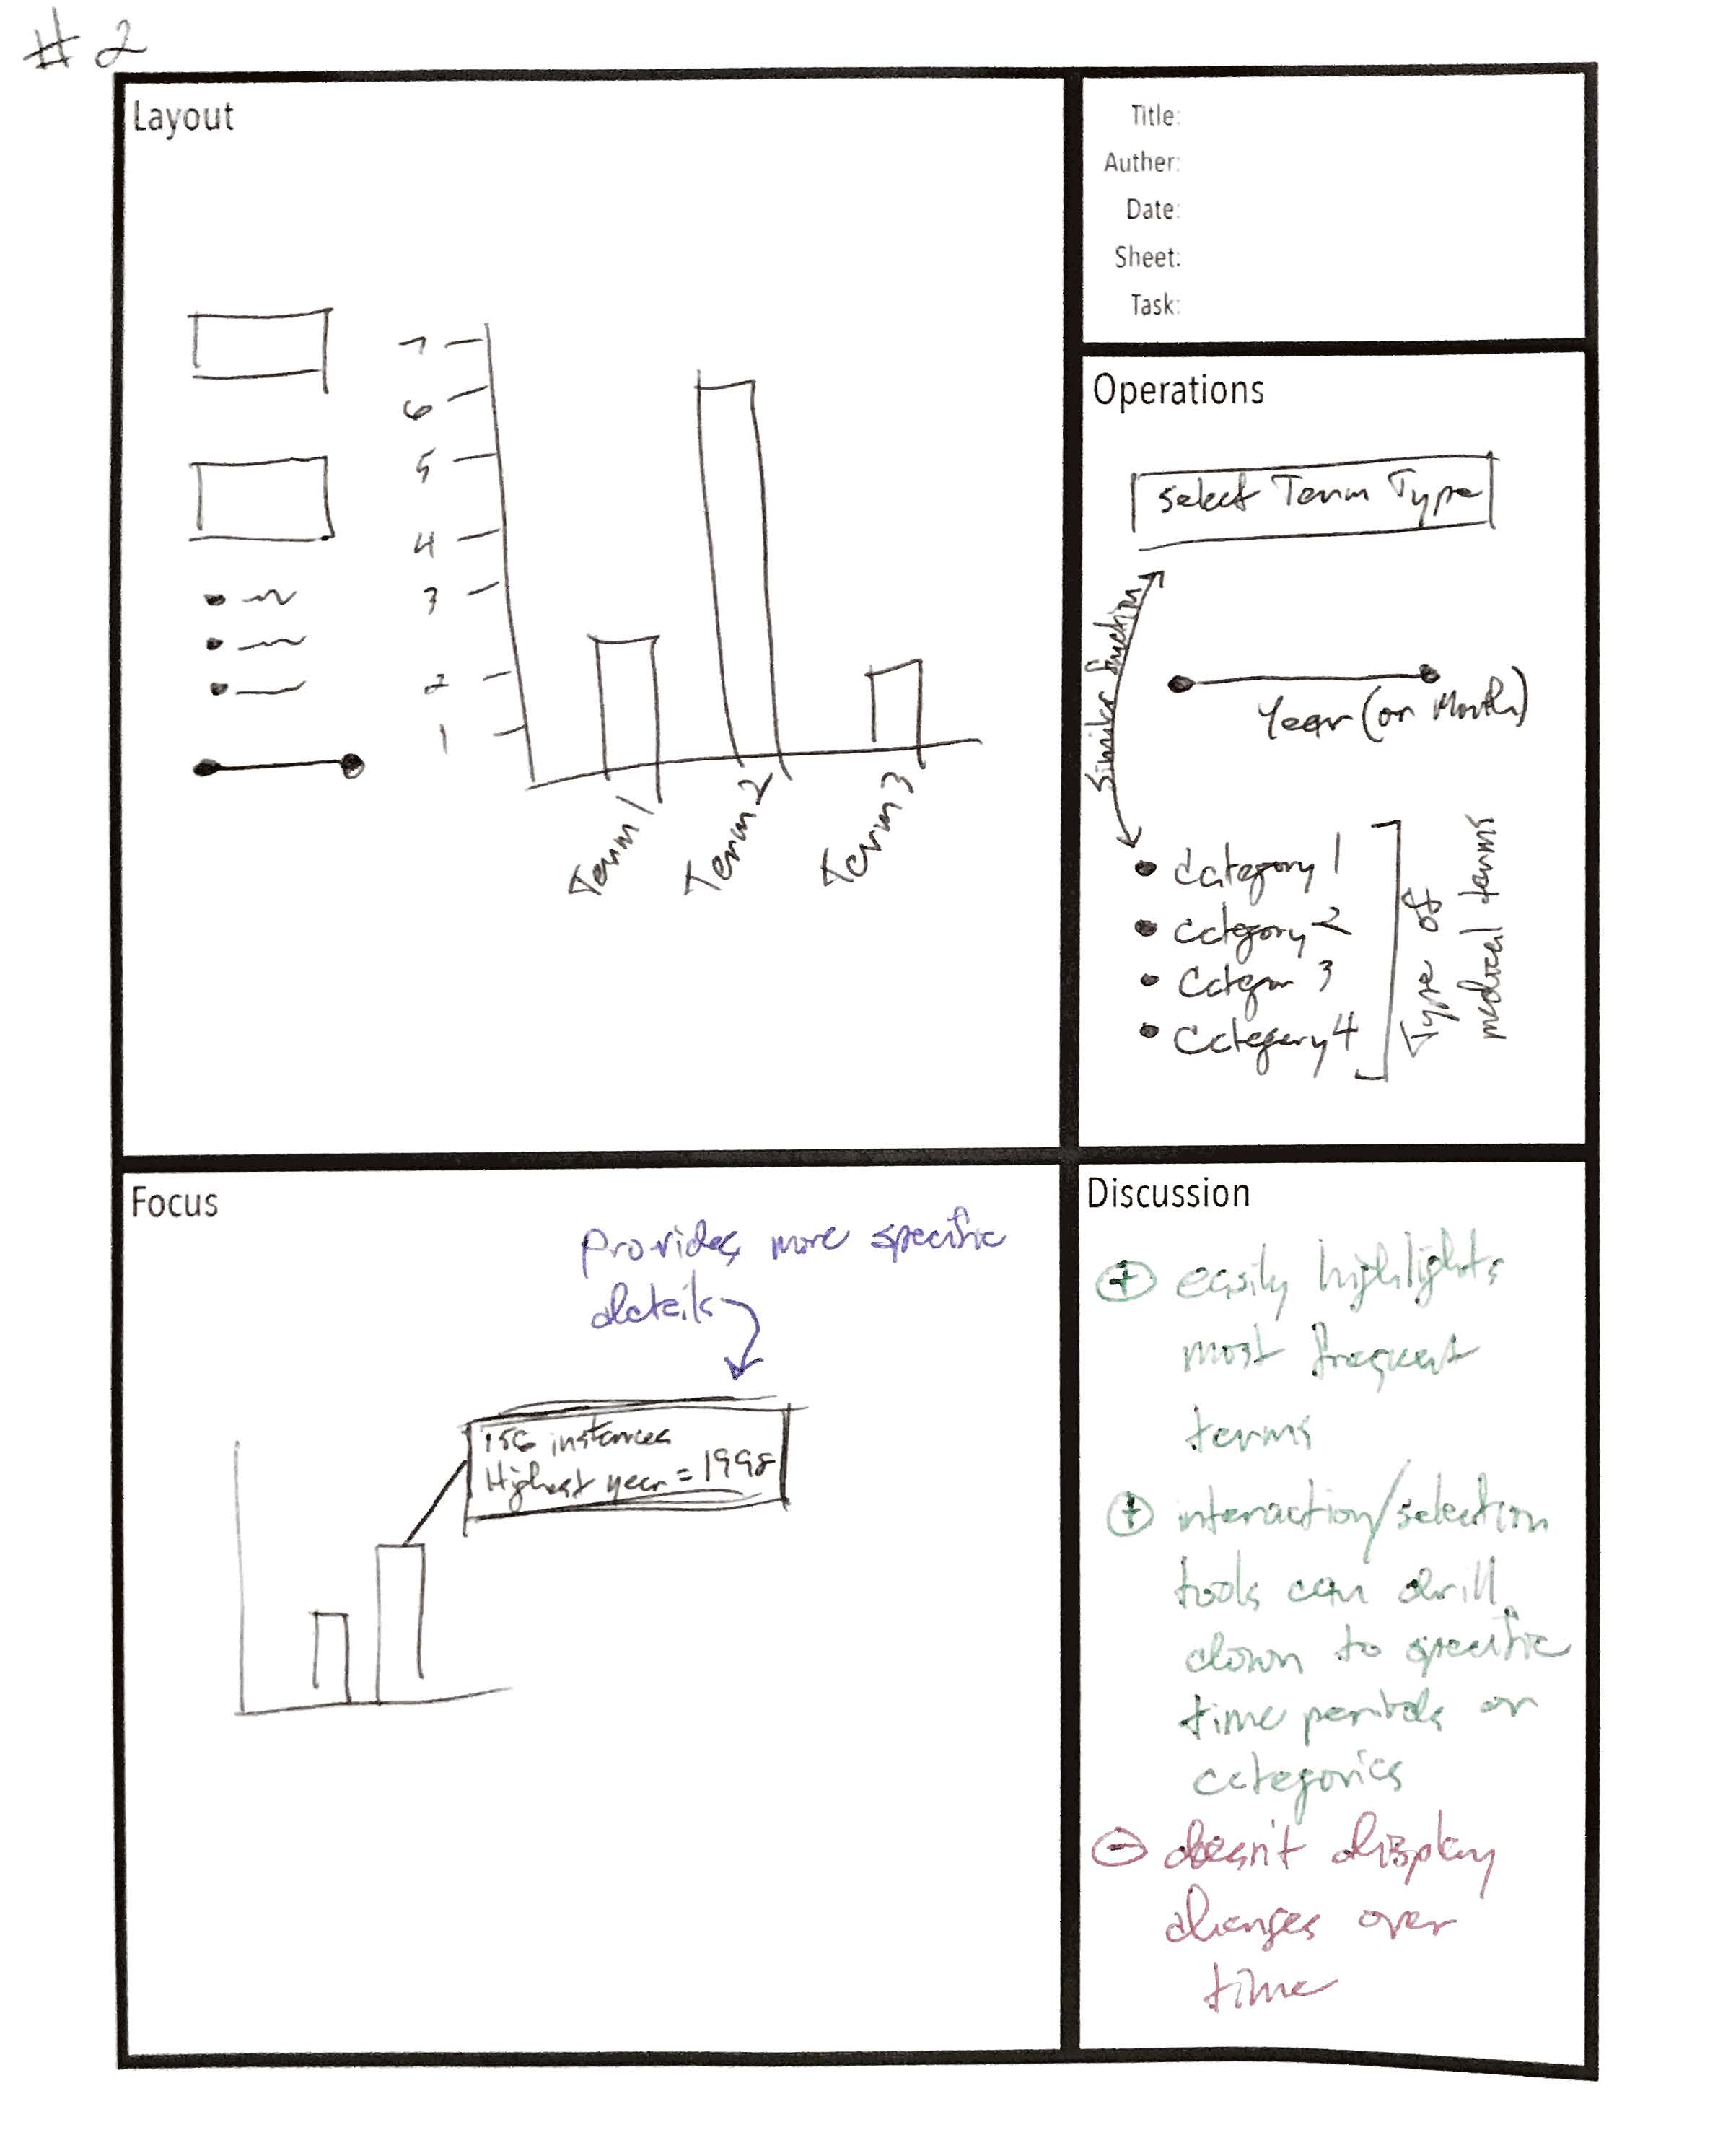 #2
Layout
7
6
5
4
3
2
1
Term 1
Term 2
Term 3
Title:
Auther:
Date:
Sheet:
Task:
Operations
Select Term Type
Similar function
Year (or Month)
• Category 1
• Category 2
• Categor 3
• Category 4
Type of
medical terms
Focus
provides more specific
details
156 instances
Highest year = 1998
Discussion
+ easily highlights
most frequent
terms
+ interaction/selection
tools can drill
down to specific
time periods or
categories
- doesn't display
changes over
time